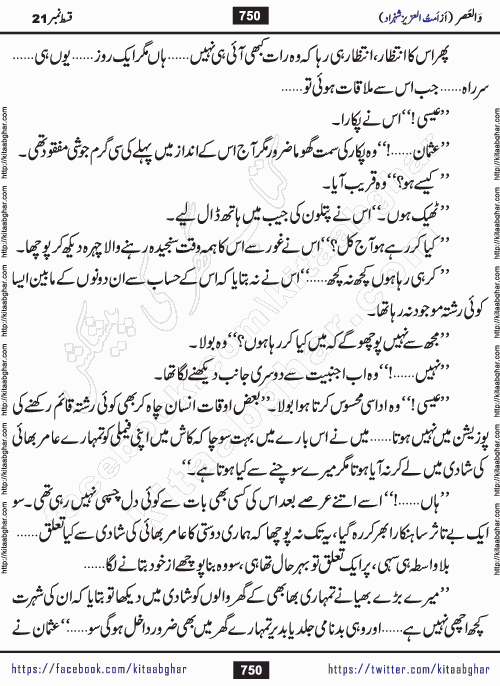 وَالعَصر (از اَمتُ العزیز شہزاد)
750
قسط نمبر 21
پھر اس کا انتظار، انتظار ہی رہا کہ وہ رات کبھی آئی ہی نہیں...... ہاں مگر ایک روز...... یوں ہی......
سرراہ...... جب اس سے ملاقات ہوئی تو......
’’عیسی!‘‘ اس نے پکارا۔
’’عثمان......!‘‘ وہ پکار کی سمت گھوما ضرور مگر آج اس کے انداز میں پہلے کی سی گرم جوشی مفقود تھی۔
’’کیسے ہو؟‘‘ وہ قریب آیا۔
’’ٹھیک ہوں۔‘‘ اس نے پتلون کی جیب میں ہاتھ ڈال لیے۔
’’کیا کر رہے ہو آج کل؟‘‘ اس نے غور سے اس کا ہمہ وقت سنجیدہ رہنے والا چہرہ دیکھ کر پوچھا۔
’’کر ہی رہا ہوں کچھ نہ کچھ......‘‘ اس نے نہ بتایا کہ اس کے حساب سے ان دونوں کے مابین ایسا
کوئی رشتہ موجود نہ رہا تھا۔
’’مجھ سے نہیں پوچھو گے کہ میں کیا کر رہا ہوں؟‘‘ وہ بولا۔
’’نہیں......!‘‘ وہ اب اجنبیت سے دوسری جانب دیکھنے لگا تھا۔
’’عیسی!‘‘ وہ اداسی محسوس کرتا ہوا بولا۔ ’’بعض اوقات انسان چاہ کر بھی کوئی رشتہ قائم رکھنے کی
پوزیشن میں نہیں ہوتا...... میں نے اس بارے میں بہت سوچا کہ کاش میں اپنی فیملی کو تمہارے عامر بھائی
کی شادی میں لے کر نہ آیا ہوتا مگر میرے سوچنے سے کیا ہوتا ہے۔‘‘
’’ہاں......!‘‘ اسے اتنے عرصے بعد اس کی کسی بھی بات سے کوئی دل چسپی نہیں رہی تھی۔ سو
ایک بے تاثر سا ہنکارا بھر کر رہ گیا، یہ تک نہ پوچھا کہ ہماری دوستی کا عامر بھائی کی شادی سے کیا تعلق......
بلاواسطہ ہی سہی، پر ایک تعلق تو بہر حال تھا ہی، سو وہ بنا پوچھے از خود بتانے لگا......
’’میرے بڑے بھیا نے تمہاری بھابھی کے گھر والوں کو شادی میں دیکھا تو بتایا کہ ان کی شہرت
کچھ اچھی نہیں ہے...... اور وہی بدنامی جلد یا بدیر تمہارے گھر میں بھی ضرور داخل ہوگی سو......‘‘ عثمان نے
https://facebook.com/kitaabghar
750
https://twitter.com/kitaabghar
http://kitaabghar.com